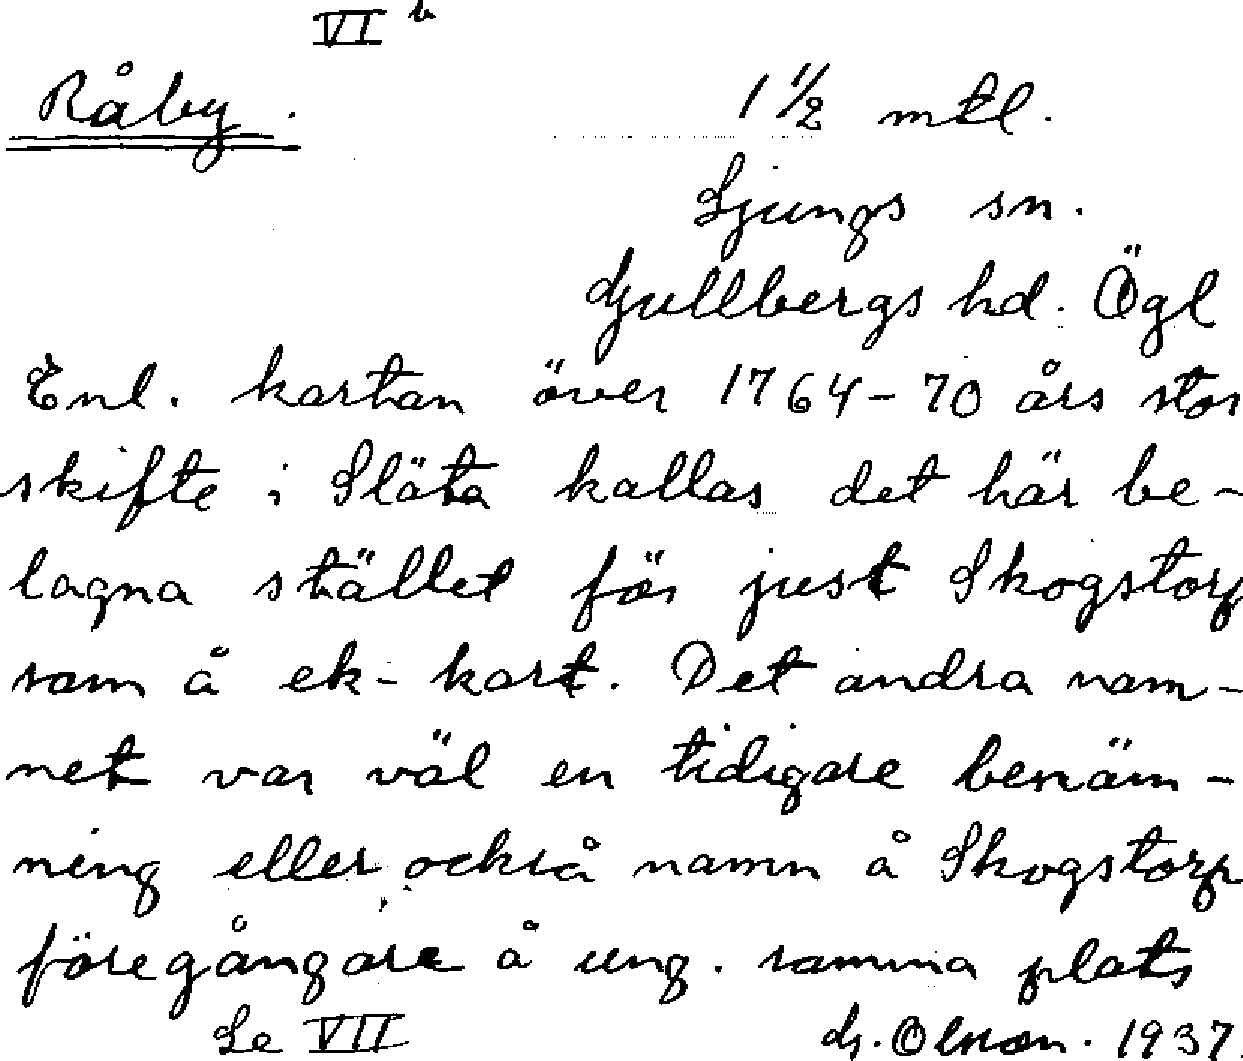 VI b
Råby.
1 1/2 mtl.
Ljungs sn.
Gullbergs hd. Ögl
Enl. kartan över 1764-70 års stor
skifte i Släta kallas det här be-
lagna stället för just Skogstorp
som å ek-kart. Det andra nam-
net var väl en tidigare benäm-
ning eller också namn å Skogstorp
föregångare å ung. samma plats
Se VII
G. Olsson. 1937.